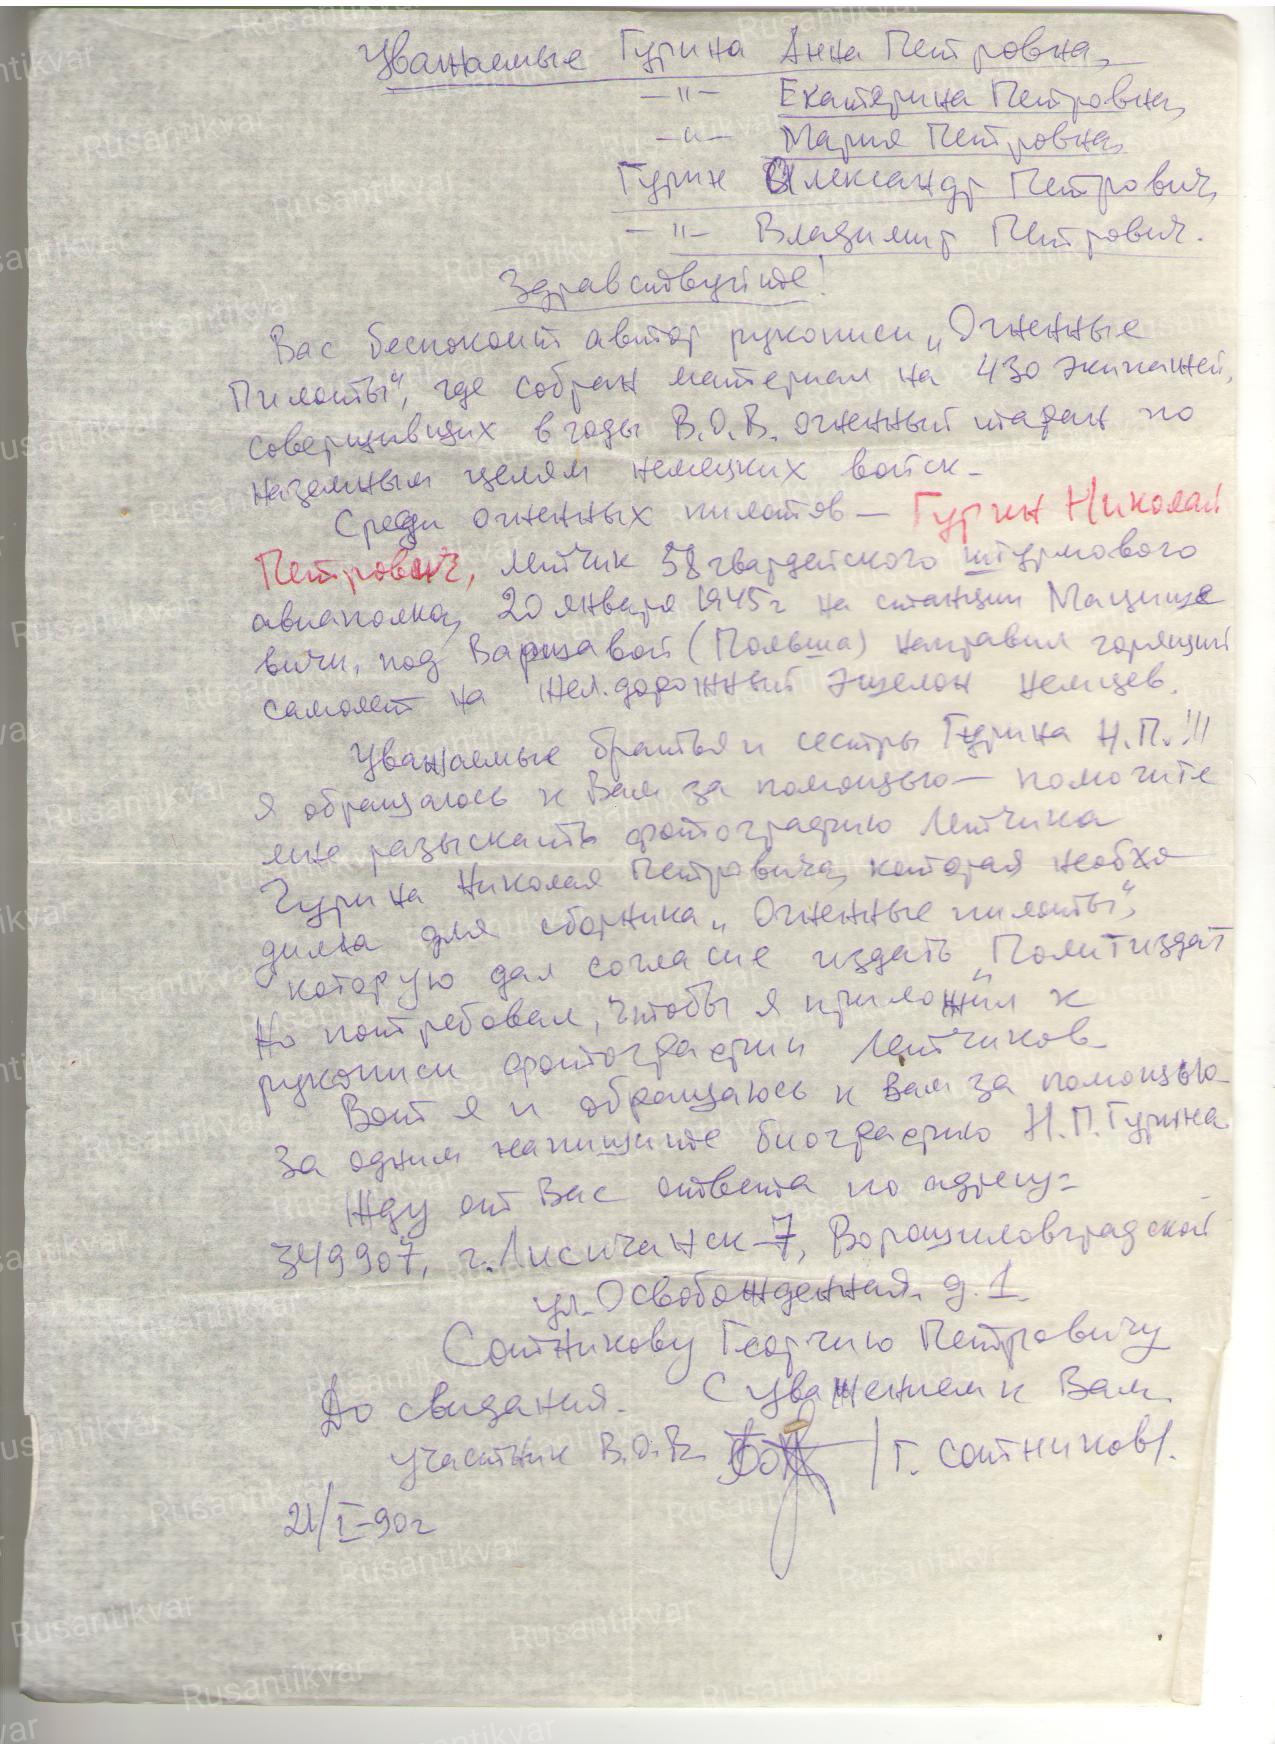 Уважаемые Гурина Анна Петровна,
—"— Екатерина Петровна,
—"— Мария Петровна,
Гурин Александр Петрович,
—"— Владимир Петрович.
Здравствуйте!
Вас беспокоит автор рукописи „Огненные
Пилоты“, где собран материал на 430 экипажей,
совершивших в годы В.О.В. огненный таран по
наземным целям немецких войск–
Среди огненных пилотов — Гурин Николай
Петрович, летчик 58 гвардейского штурмового
авиаполка, 20 января 1945г на станции Мацише
вичи, под Варшавой (Польша) направил горящий
самолет на жел.дорожный эшелон немцев.
Уважаемые братья и сестры Гурина Н.П.!!!
Я обращаюсь к Вам за помощью — помогите
мне разыскать фотографию летчика
Гурина Николая Петровича, которая необхо
дима для сборника „Огненные пилоты“,
которую дал согласие издать „Политиздат
Но потребовал, чтобы я приложил к
рукописи фотографии летчиков–
Вот я и обращаюсь к Вам за помощью–
За одним напишите биографию Н.П.Гурина
Жду от Вас ответа по адресу:
349907, г.Лисичанск-7, Ворошиловградской
ул. Освобожденная, д.1.
Сотникову Георгию Петровичу
До свидания. С уважением к Вам
участник В.О.В. /Г. Сотников/.
21/I–90г
Rusantikvar